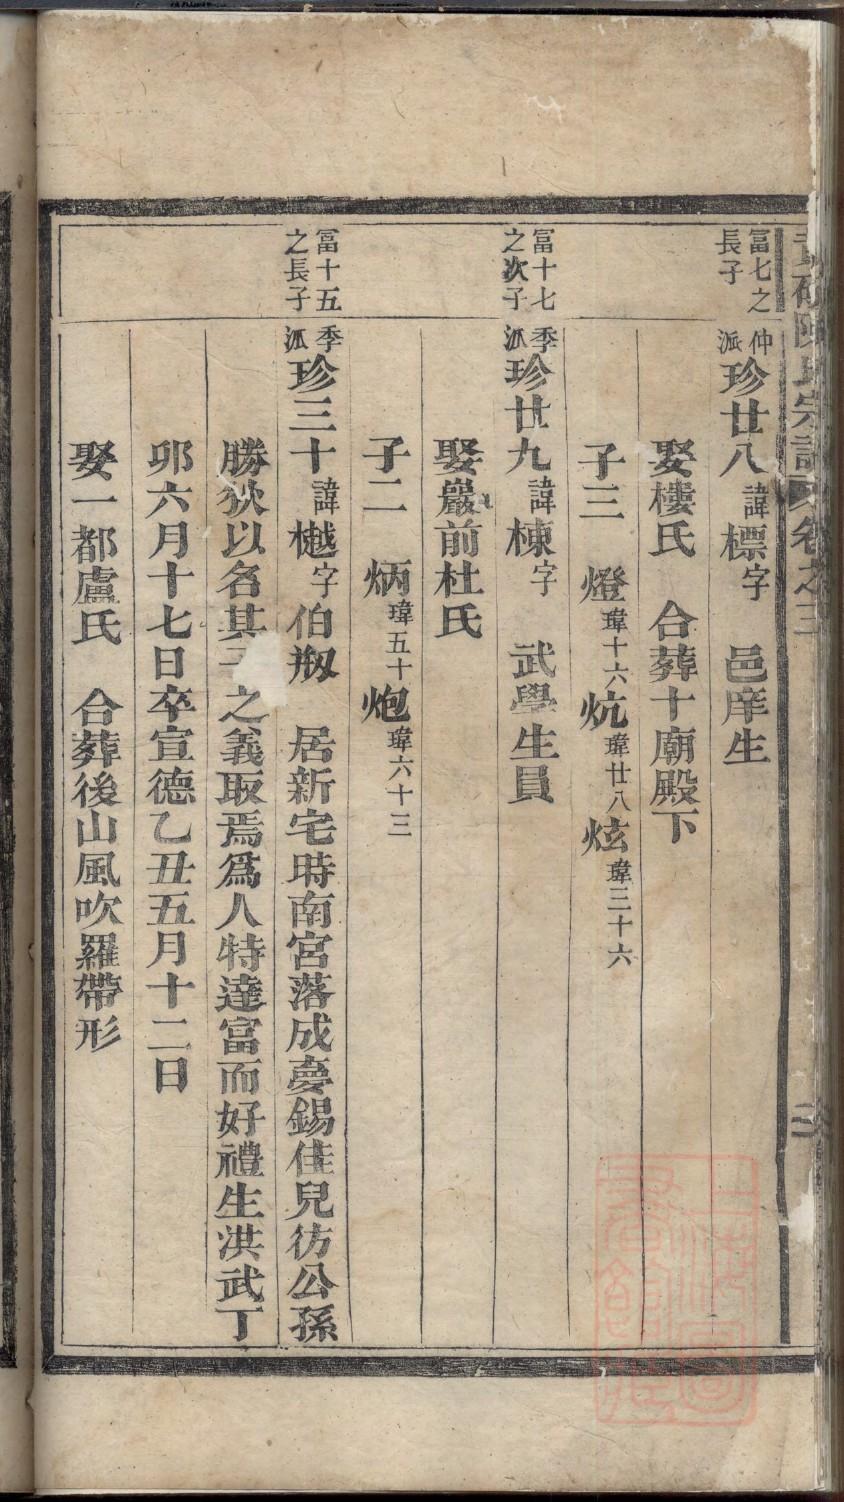 陳氏宗譜 卷之三
富七之長子
仲派 珍廿八 諱 標 字 邑庠生
娶樓氏 合葬十廟殿下
子三 燈 瑋十六 炕 瑋廿八 炫 瑋三十六
富十七之次子
季派 珍廿九 諱 棟 字 武學生員
娶巖前杜氏
子二 炳 瑋五十 炮 瑋六十三
富十五之長子
季派 珍三十 諱 樾 字 伯 居新宅時南宮落成夢錫佳兒彷公孫
勝狄以名其子之義取焉爲人特達富而好禮生洪武丁
卯六月十七日卒宣德乙丑五月十二日
娶一都盧氏 合葬後山風吹羅帶形